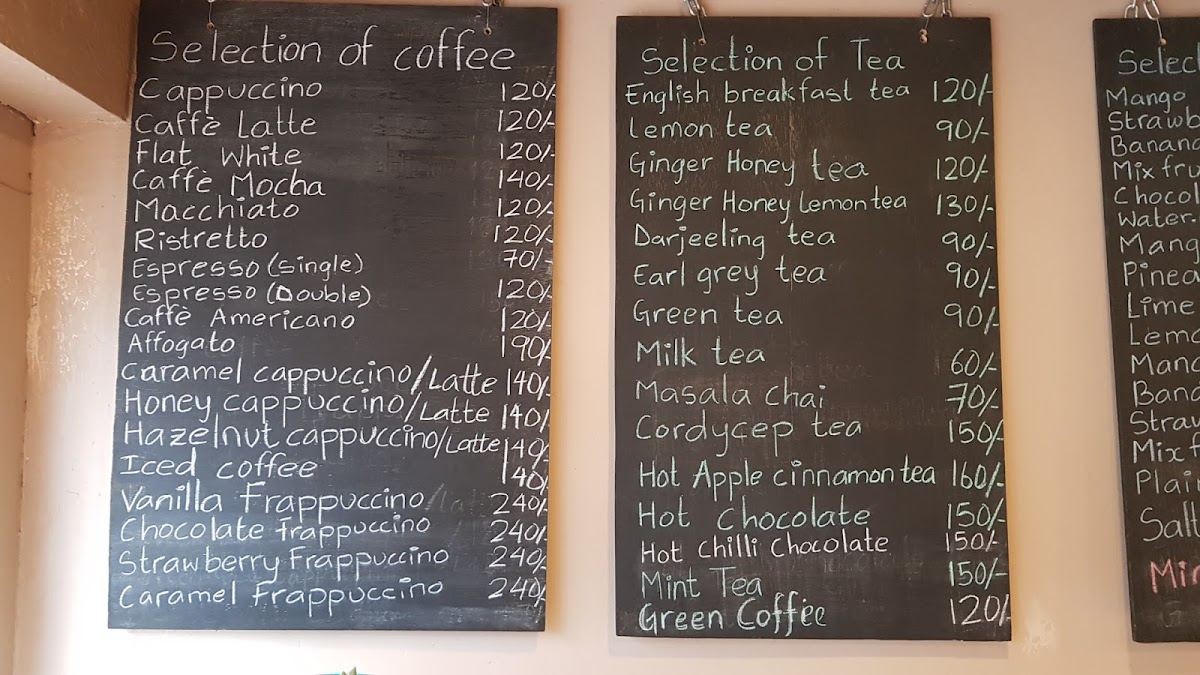 Selection of coffee
Cappuccino 120/-
Caffè Latte 120/-
Flat White 120/-
Caffè Mocha 140/-
Macchiato 120/-
Ristretto 120/-
Espresso (single) 70/-
Espresso (Double) 120/-
Caffè Americano 120/-
Affogato 190/-
Caramel cappuccino/Latte 140/-
Honey cappuccino/Latte 140/-
Hazelnut cappuccino/Latte 140/-
Iced coffee 140/-
Vanilla Frappuccino 240/-
Chocolate Frappuccino 240/-
Strawberry Frappuccino 240/-
Caramel Frappuccino 240/-
Selection of Tea
English breakfast tea 120/-
Lemon tea 90/-
Ginger Honey tea 120/-
Ginger Honey lemon tea 130/-
Darjeeling tea 90/-
Earl grey tea 90/-
Green tea 90/-
Milk tea 60/-
Masala chai 70/-
Cordycep tea 150/-
Hot Apple cinnamon tea 160/-
Hot chocolate 150/-
Hot chilli chocolate 150/-
Mint Tea 150/-
Green Coffee 120/-
Mango
Banana
Mix
Lime